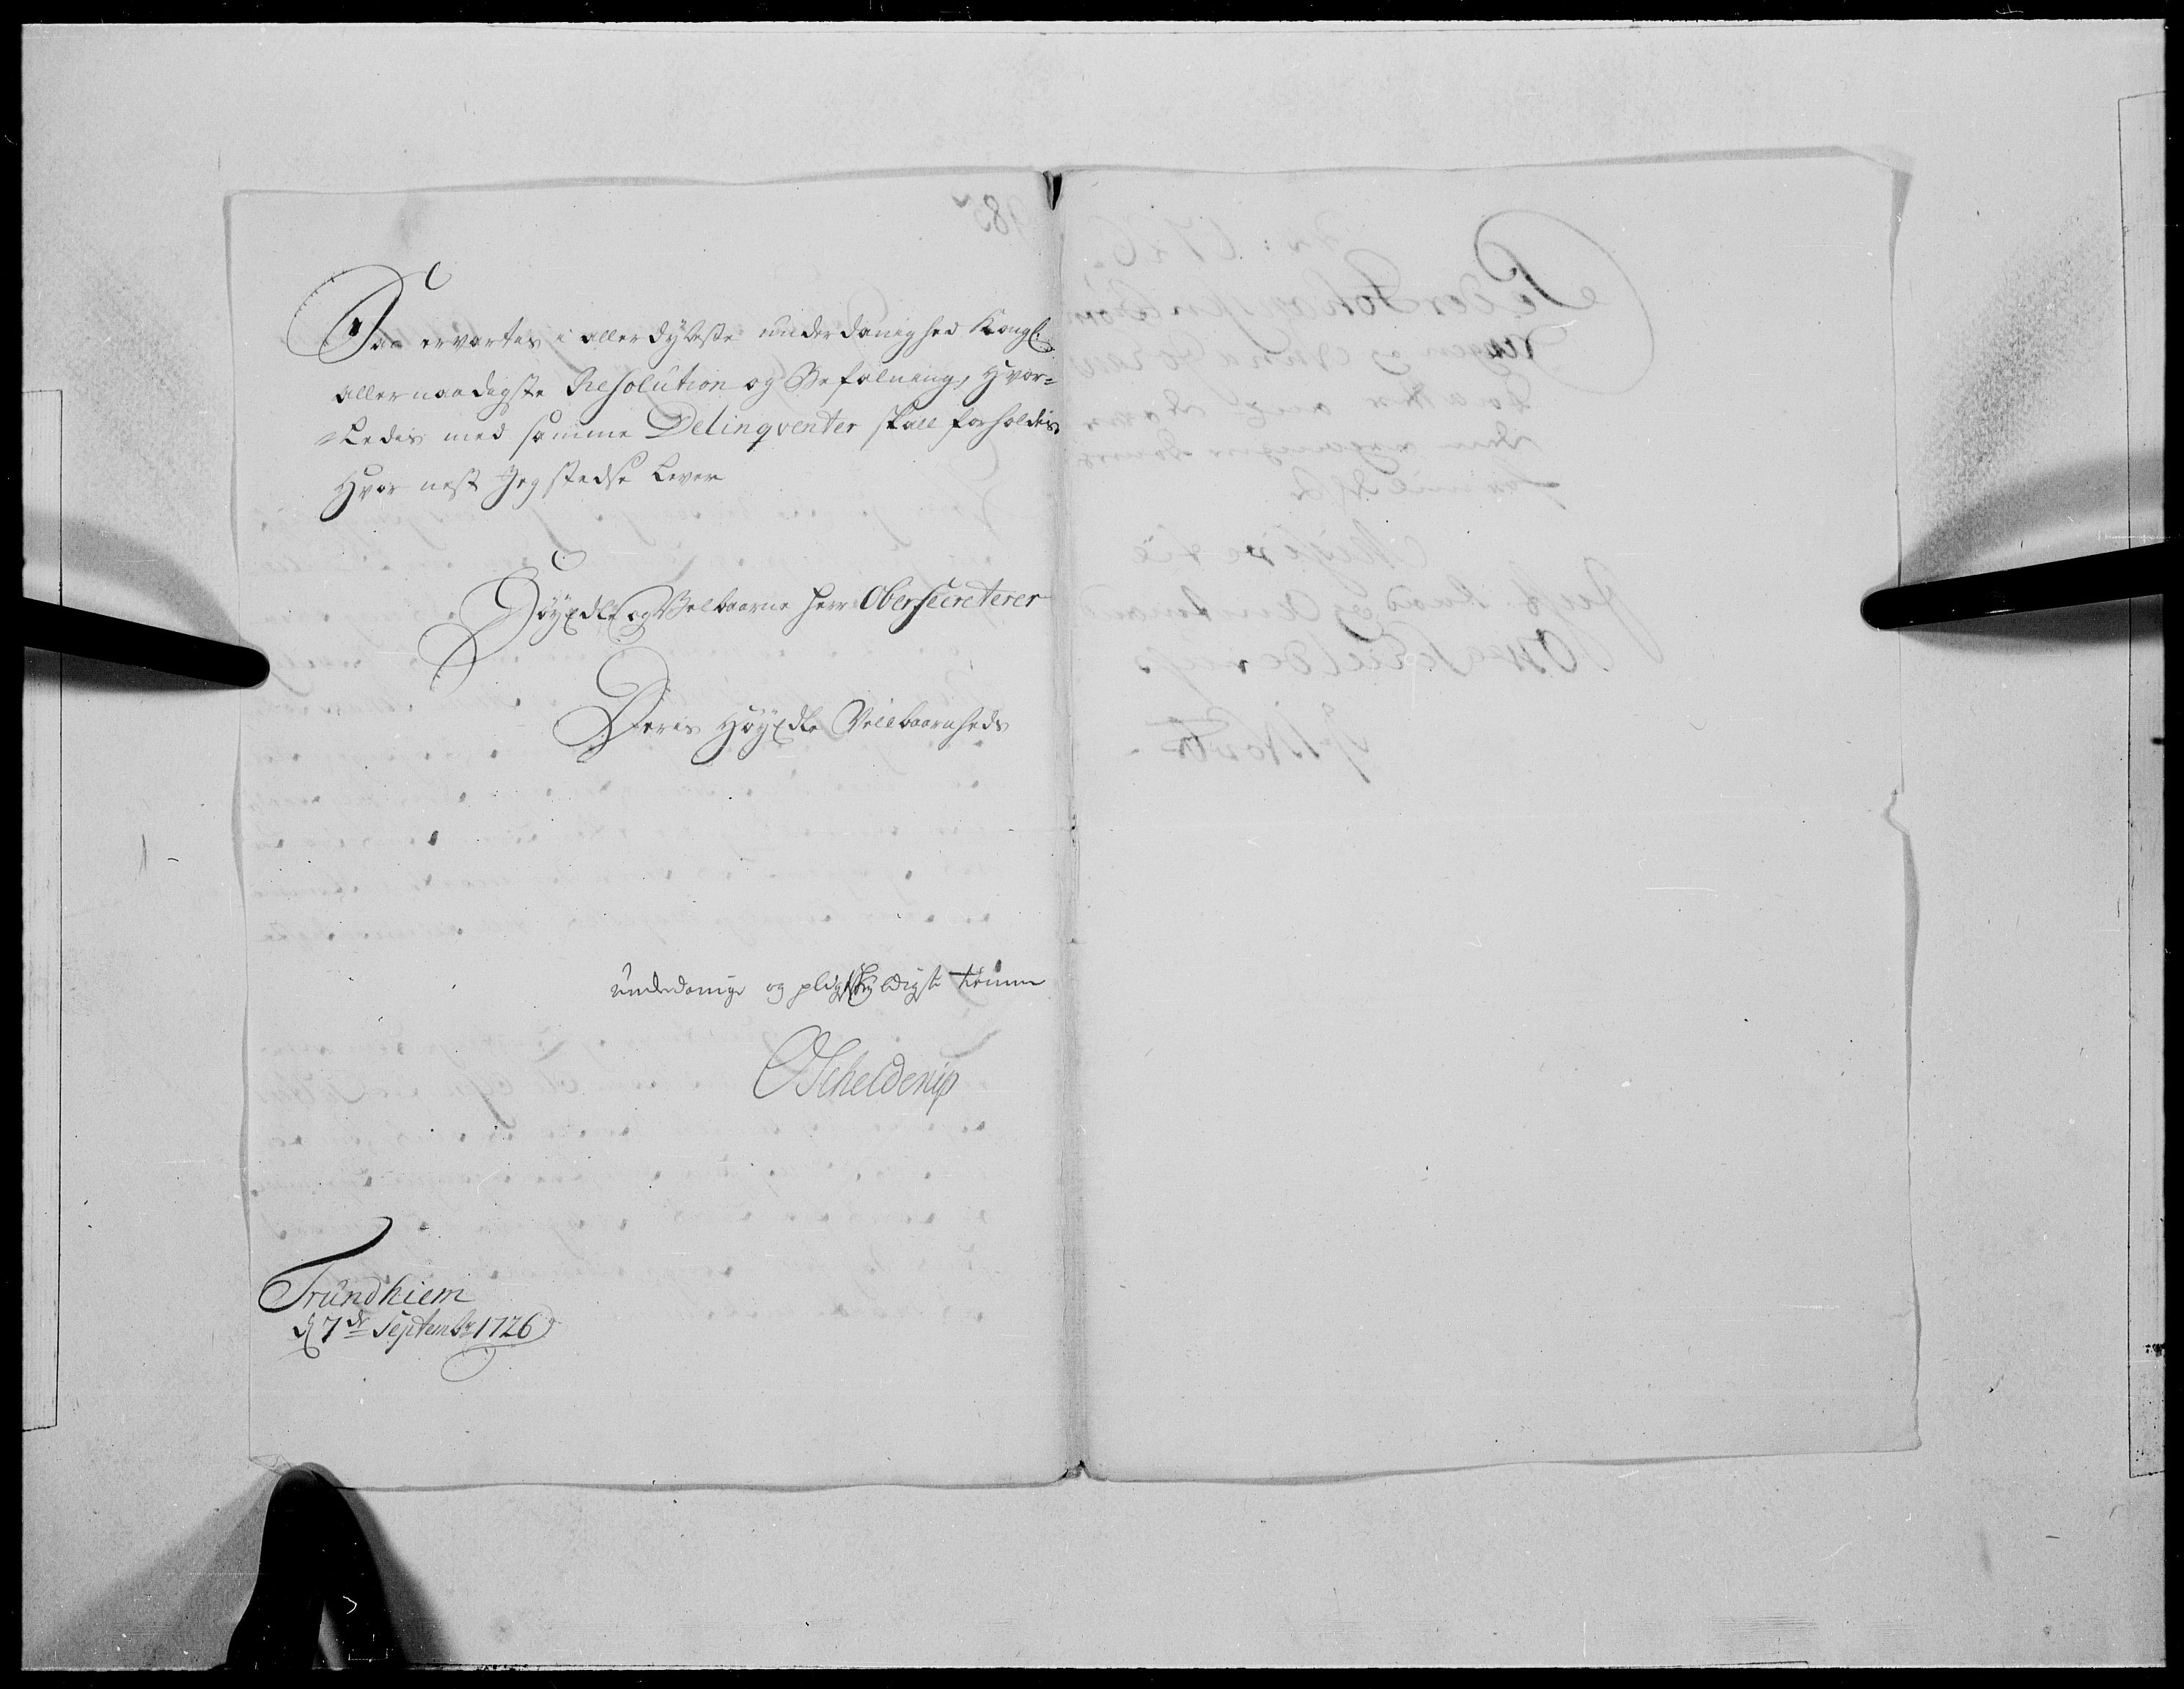 Saa ervartes i allerdybeste underdanighed Kongl:
allernaadigste Resolution og Befalning, Hvor=
=Ledes med samme Delinqventer skall forholdes
Hvor nest Jeg stedse Lever
HøyEdle og Velbaarne Herr Obersecreterer
Deris HøyEdle Velbaarnheds
underdanige og pligtskyldigste tiener
Schelderup
Trundhiem
d 7de Septembr 1726